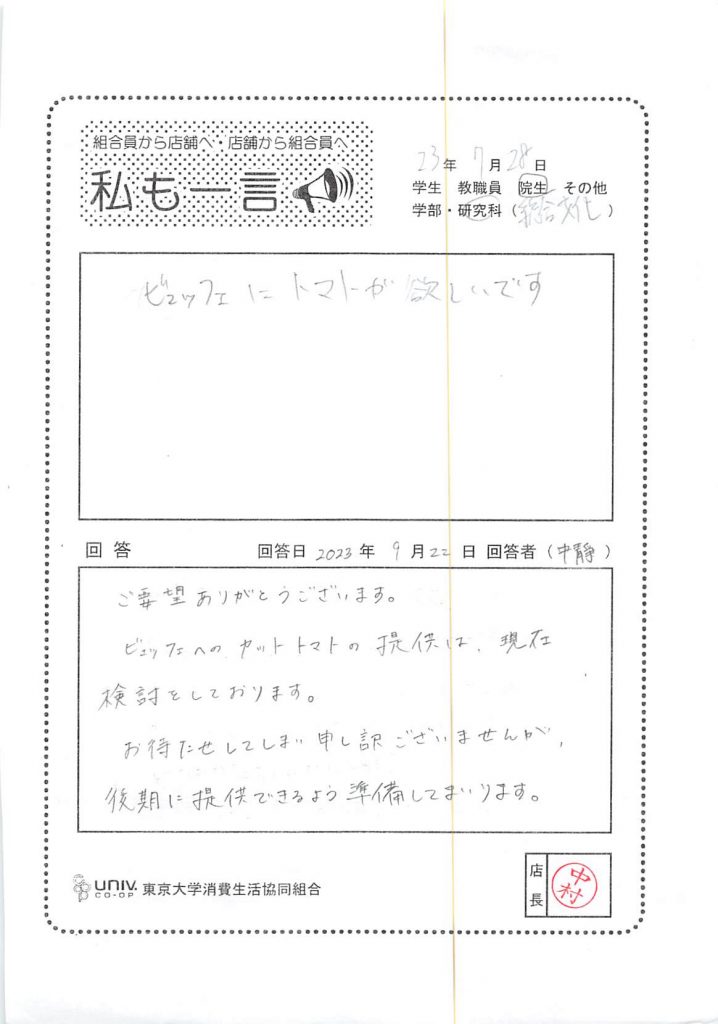 組合員から店舗へ・店舗から組合員へ
私も一言
23年 7月 28日
学生 教職員 院生 その他
学部・研究科（総合文化）
ビュッフェに トマトが 欲しいです
回答 回答日 2023年 9月22日 回答者（中静）
ご要望ありがとうございます。
ビュッフェへの カットトマトの 提供は、現在
検討をしております。
お待たせしてしまい 申し訳ございませんが、
後期に提供できるよう準備してまいります。
店長
中村
UNIV. CO-OP 東京大学消費生活協同組合